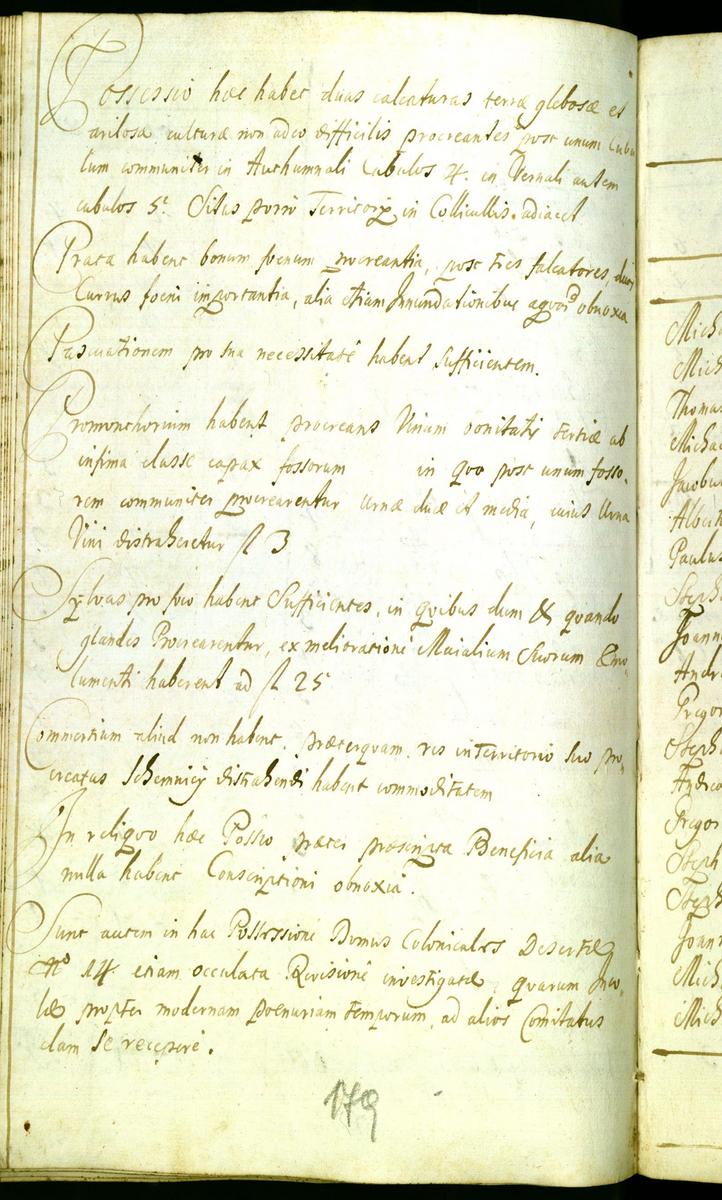 Possessio hæc habet duas calcaturas terræ glebosæ et
arilosæ culturæ non adeo difficilis procreantes post unum Cubu
lum communiter in Authumnali Cubulos 4. in Vernali autem
cubulos 5. Situs porro Territorij in Collicullis adiacet
Prata habent bonum foenum procreantia, post tres falcatores, duos
Currus foeni importantia, alia etiam Innundationibus aquor obnoxia
Pascuationem pro sua necessitate habent Sufficientem.
Promonthorium habent procreans Vinum bonitatis tertiæ ab
infima classe capax fossorum in quo post unum fosso-
rem communiter procrearentur Urnæ duæ et media, cuius Urna
Vini distraheretur fl 3
Sylvas pro foco habent Sufficientes, in quibus dum & quando
glandes Procrearentur, ex melioratione Maialium Suorum Emo-
lumenti haberent ad fl 25
Commertium aliud non habent, præterquam res in Territorio suo pro-
creatas Schemnicij distrahendi habent commoditatem
In reliquo hæc Possio præter præscripta Beneficia alia
nulla habent Conscriptioni obnoxia.
Sunt autem in hac Possessione Domus Colonicales Desertæ
No 14. etiam occulata Revisione investigatæ, quarum Inco-
læ propter modernam poenuriam temporum, ad alios Comitatus
clam se recepere.
179
Mich
Mich
Thomas
Michae
Jacobus
Albert
Paulus
Steph
Joanne
Andre
Gregor
Steph
Andrea
Gregor
Steph
Steph
Joann
Mich
Mich